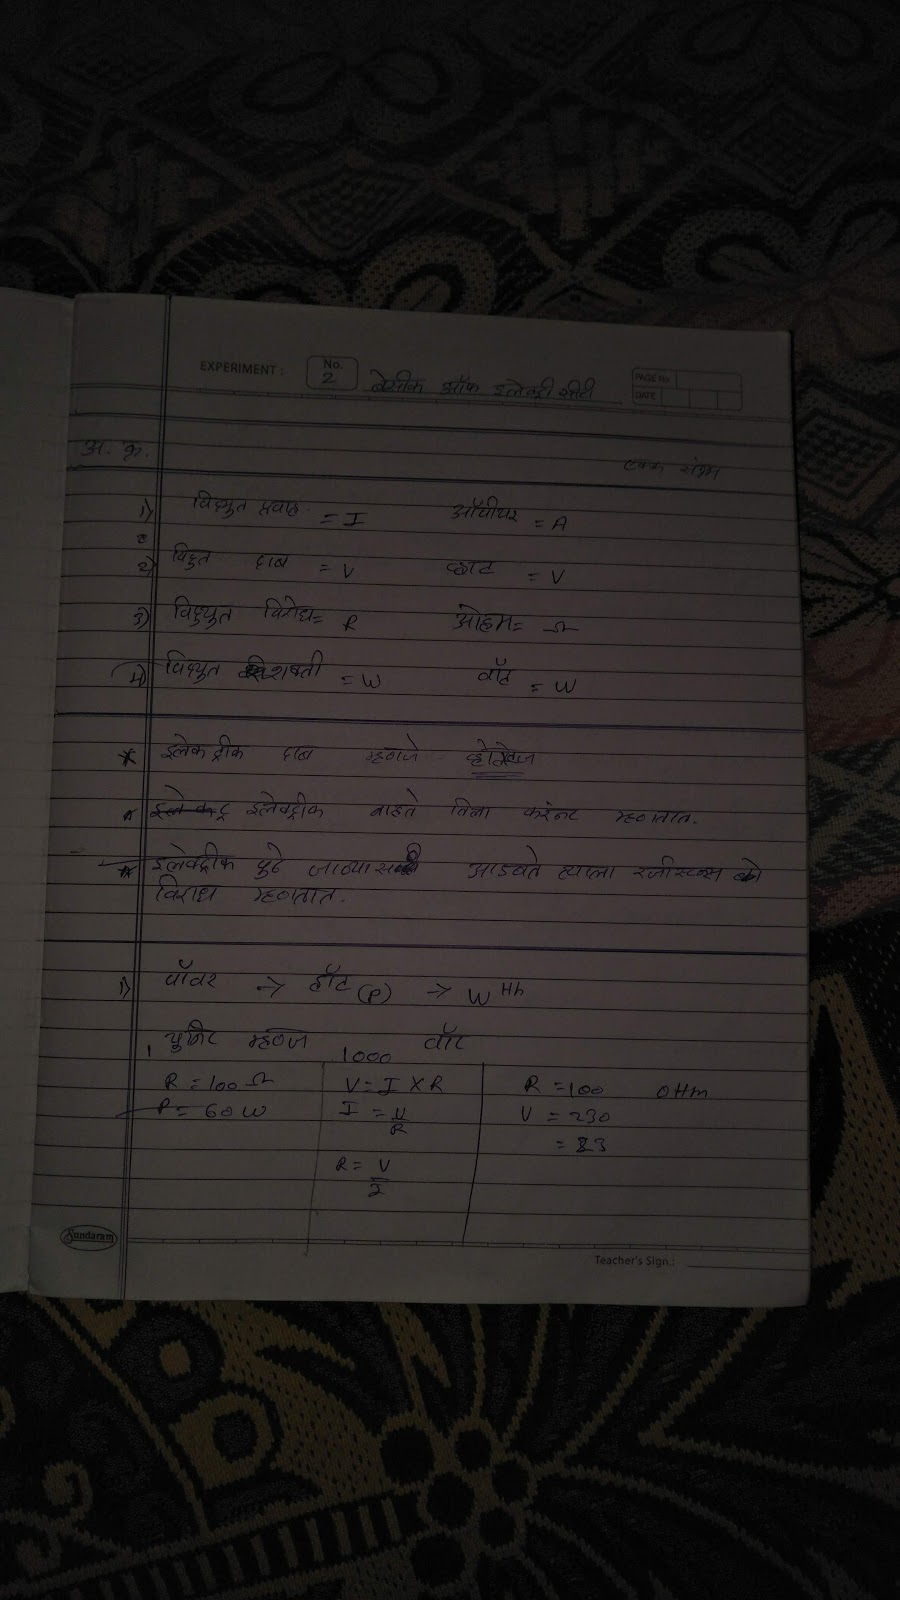 EXPERIMENT : No. 2 बेसीक ऑफ इलेक्ट्रीसीटी PAGE No.
DATE
अ. क्र. एकक संज्ञा
1) विद्युत प्रवाह = I = A
2) विद्युत दाब = V व्होट = V
3) विद्युत विरोध = R ओहम = Ω
4) विद्युत शक्ती = W वॅट = W
* इलेकट्रीक दाब म्हणजे व्होल्टेज
* इलेक्ट्रीक वाहते तिला करंन्ट म्हणतात.
* इलेक्ट्रीक पुढे जाण्यासाठी आडवते त्याला रजीस्टन्स
विरोध म्हणतात.
1) पॉवर → वॅट (P) → W
1 युनिट म्हणजे 1000 वॅट
R = 100 Ω V = I X R R = 100 OHm
P = 60 W I = V/R V = 230
= 23
R = V/I
Sundaram
Teacher's Sign.: